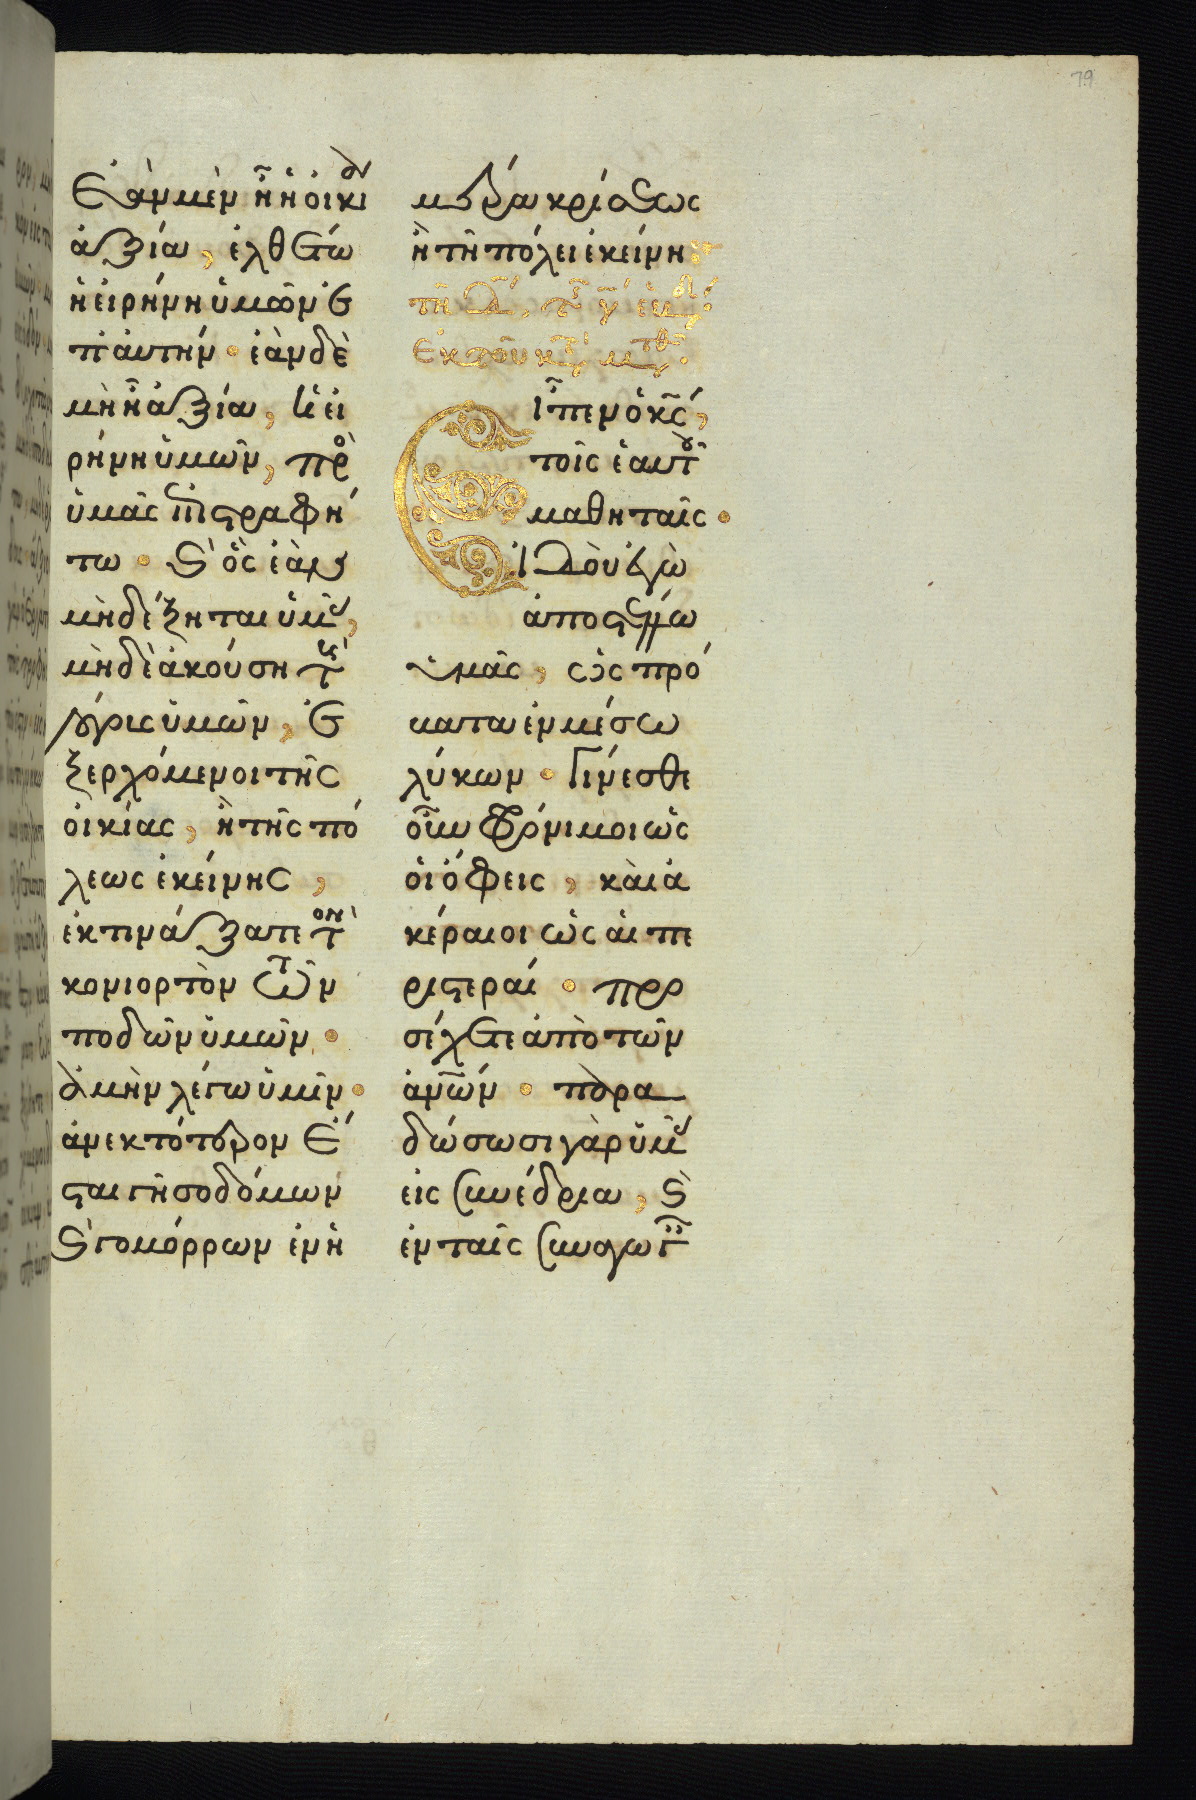 79
Ἐὰν μὲν ἦ ἡ οἰκί
ἀξία, ἐλθέτω
ἡ εἰρήνη ὑμῶν ἐ
π' ἀυτήν · ἐὰν δὲ
μὴ ἦ ἀξία, ἡ εἰ
ρήνη ὑμῶν, πρὸ
ὑμᾶς ἐπιστραφή
τω · καὶ ὃς ἐὰν
μὴ δέξηται ὑμᾶς,
μὴδὲ ἀκούση τοὺς
λόγους ὑμῶν, ἐ
ξερχόμενοι τῆς
οἰκίας, ἢ τῆς πό
λεως ἐκείνης,
ἐκτινάξατε τὸν
κονιορτὸν τῶν
ποδῶν ὑμῶν ·
ἀμὴν λέγω ὑμῖν ·
ἀνεκτότερον ἔ
σται γῆ σοδόμων
καὶ γομόρρων ἐν ἡ
μέρα κρίσεως
ἢ τῆ πόλει ἐκείνη
τῆ
ἐκ τοῦ κατὰ ματθ
Εἶπεν ὁ κς,
τοῖς ἑαυτοῦ
μαθηταῖς ·
ἰδοὺ ἐγὼ
ἀποστέλλω
ὑμᾶς, ὡς πρό
βατα ἐν μέσω
λύκων · Γίνεσθε
οὖν φρόνιμοι ὡς
οἱ ὄφεις, καὶ ἀ
κέραιοι ὡς ἁι πε
ριστεραί · προ
σέχετε ἀπὸ τῶν
ἀνῶν · παρα
δώσωσι γὰρ ὑμᾶς
εἰς συνέδρια, καὶ
ἐν ταῖς συναγωγ